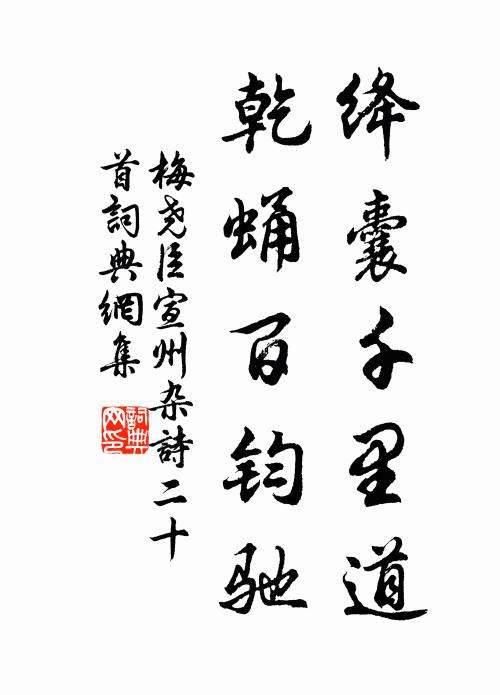 绛囊千里道
乾蛹百钧驰
梅尧臣宣州杂詩二十
首詞典網集
詞典网印